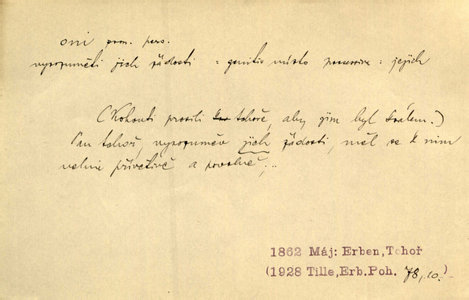 oni pron. pers.
vyrozuměti jich žádosti : genitiv místo possessiva : jejich
(Kohouti prosili tchoře, aby jim byl králem.)
Pan tchoř, vyrozuměv jich žádosti, měl se k nim
velmi přívětivě a povolně;..
1862 Máj: Erben,Tchoř
(1928 Tille,Erb.Poh. 78,10.)